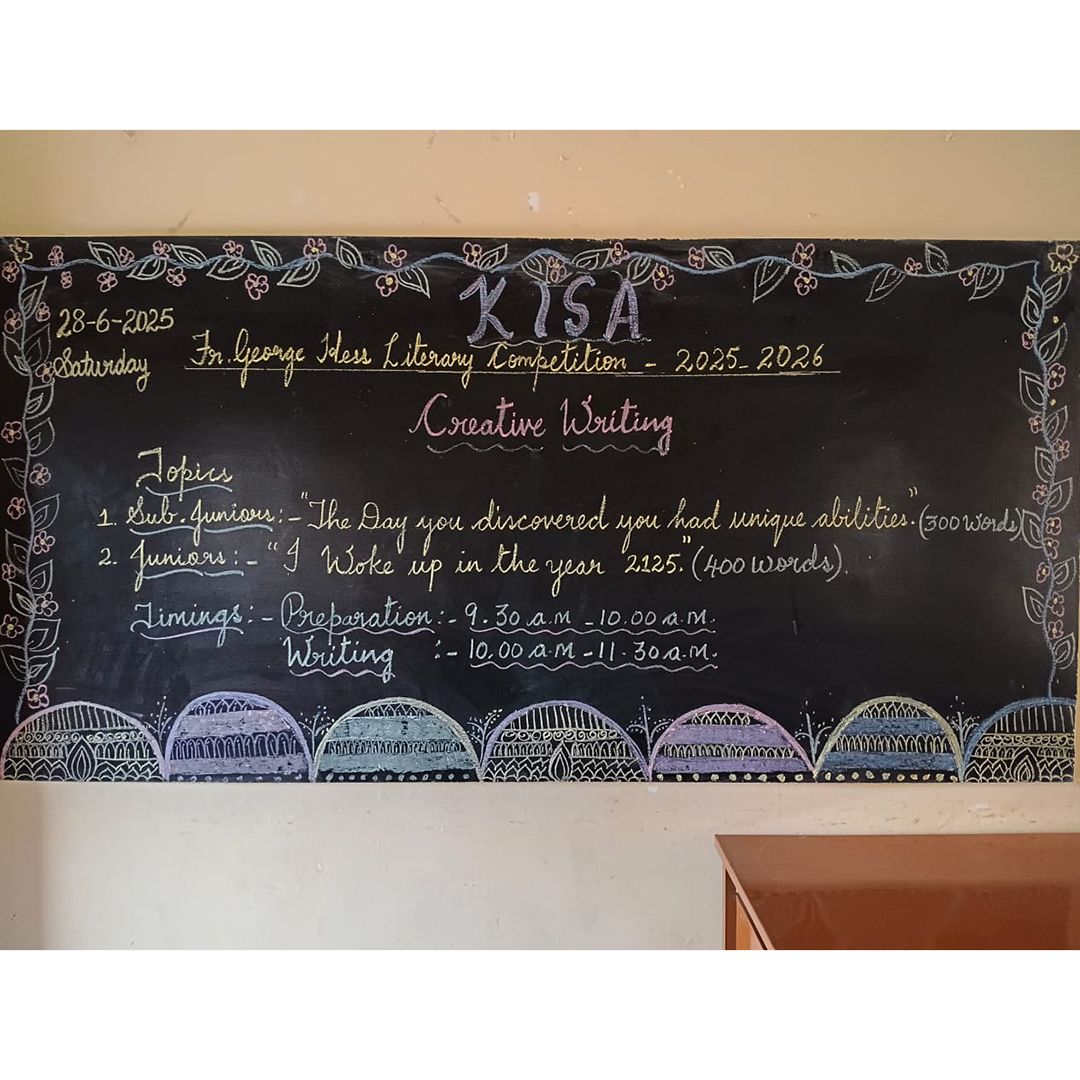 KISA
28-6-2025
Saturday
Fr. George Hess Literary Competition - 2025-2026
Creative Writing
Topics
1. Sub-Juniors:- "The Day you discovered you had unique abilities." (300 words)
2. Juniors:- "I Woke up in the year 2125." (400 words).
Timings:- Preparation:- 9.30 a.m - 10.00 a.m.
Writing :- 10.00 a.m - 11.30 a.m.